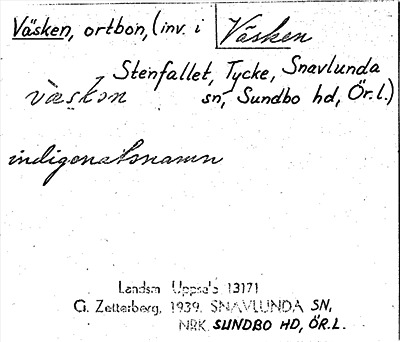 Väsken, ortbon, (inv. i Väsken
Stenfallet, Tycke, Snavlunda
sn, Sundbo hd, Ör.l.)
indigenatsnamn
Landsm Uppsala 13171
G. Zetterberg. 1939. SNAVLUNDA SN,
NRK. SUNDBO HD, ÖR.L.